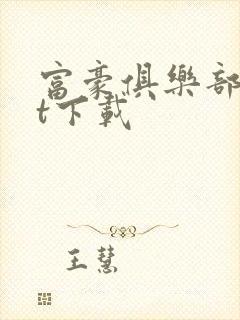 富豪俱樂部
t下載
王慧